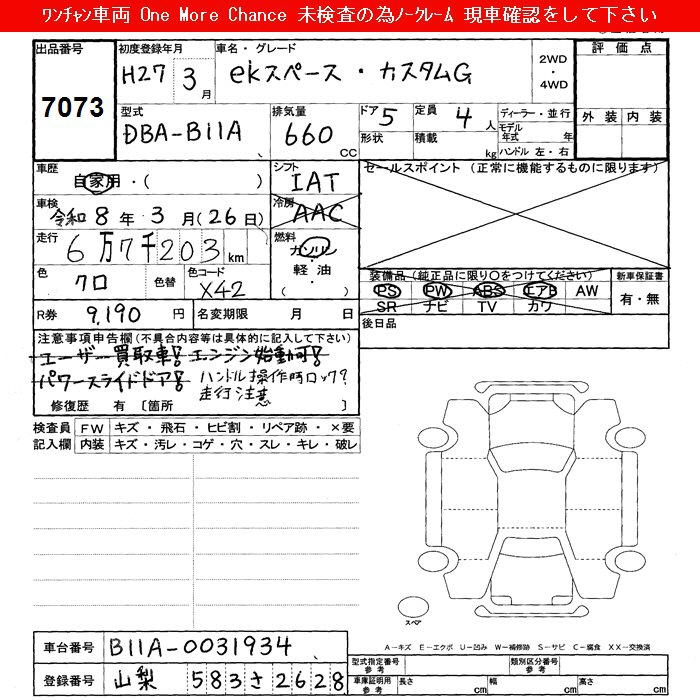 ﾜﾝﾁｬﾝ車両 One More Chance 未検査の為ﾉｰｸﾚｰﾑ 現車確認をして下さい
出品番号 初度登録年月 車名・グレード 評価点
H27 3月 ekスペース・カスタムG 2WD・4WD
7073
型式 排気量 ドア 5 定員 4人 ディーラー・並行 外装 内装
DBA-B11A 660cc 形状 積載 kg モデル年式 年
ハンドル 左・右
車歴 シフト セールスポイント (正常に機能するものに限ります)
自家用・( ) IAT
車検 冷房
令和8年3月(26日) AAC
走行 燃料
6万7千203km ガソリン
軽油
色 色替 色コード ( ) 装備品(純正品に限り○をつけてください) 新車保証書
クロ X42 PS PW ABS エアB AW 有・無
SR ナビ TV カワ
R券 9,190円 名変期限 月 日 後日品
注意事項申告欄(不具合内容等は具体的に記入して下さい)
ユーザー買取車! エンジン始動可!
パワースライドドア! ハンドル操作時ロック?
走行注意
修復歴 有 [箇所 ]
検査員 FW キズ・飛石・ヒビ割・リペア跡・×要
記入欄 内装 キズ・汚レ・コゲ・穴・スレ・キレ・破レ
スペア
車台番号 B11A-0031934
A−キズ E−エクボ U−凹み W−補修跡 S−サビ C−腐食 XX−交換済
登録番号 山梨 583さ2628
型式指定番号 参考 類別区分番号 参考
車庫証明用 参考 長さ cm 幅 cm 高さ cm